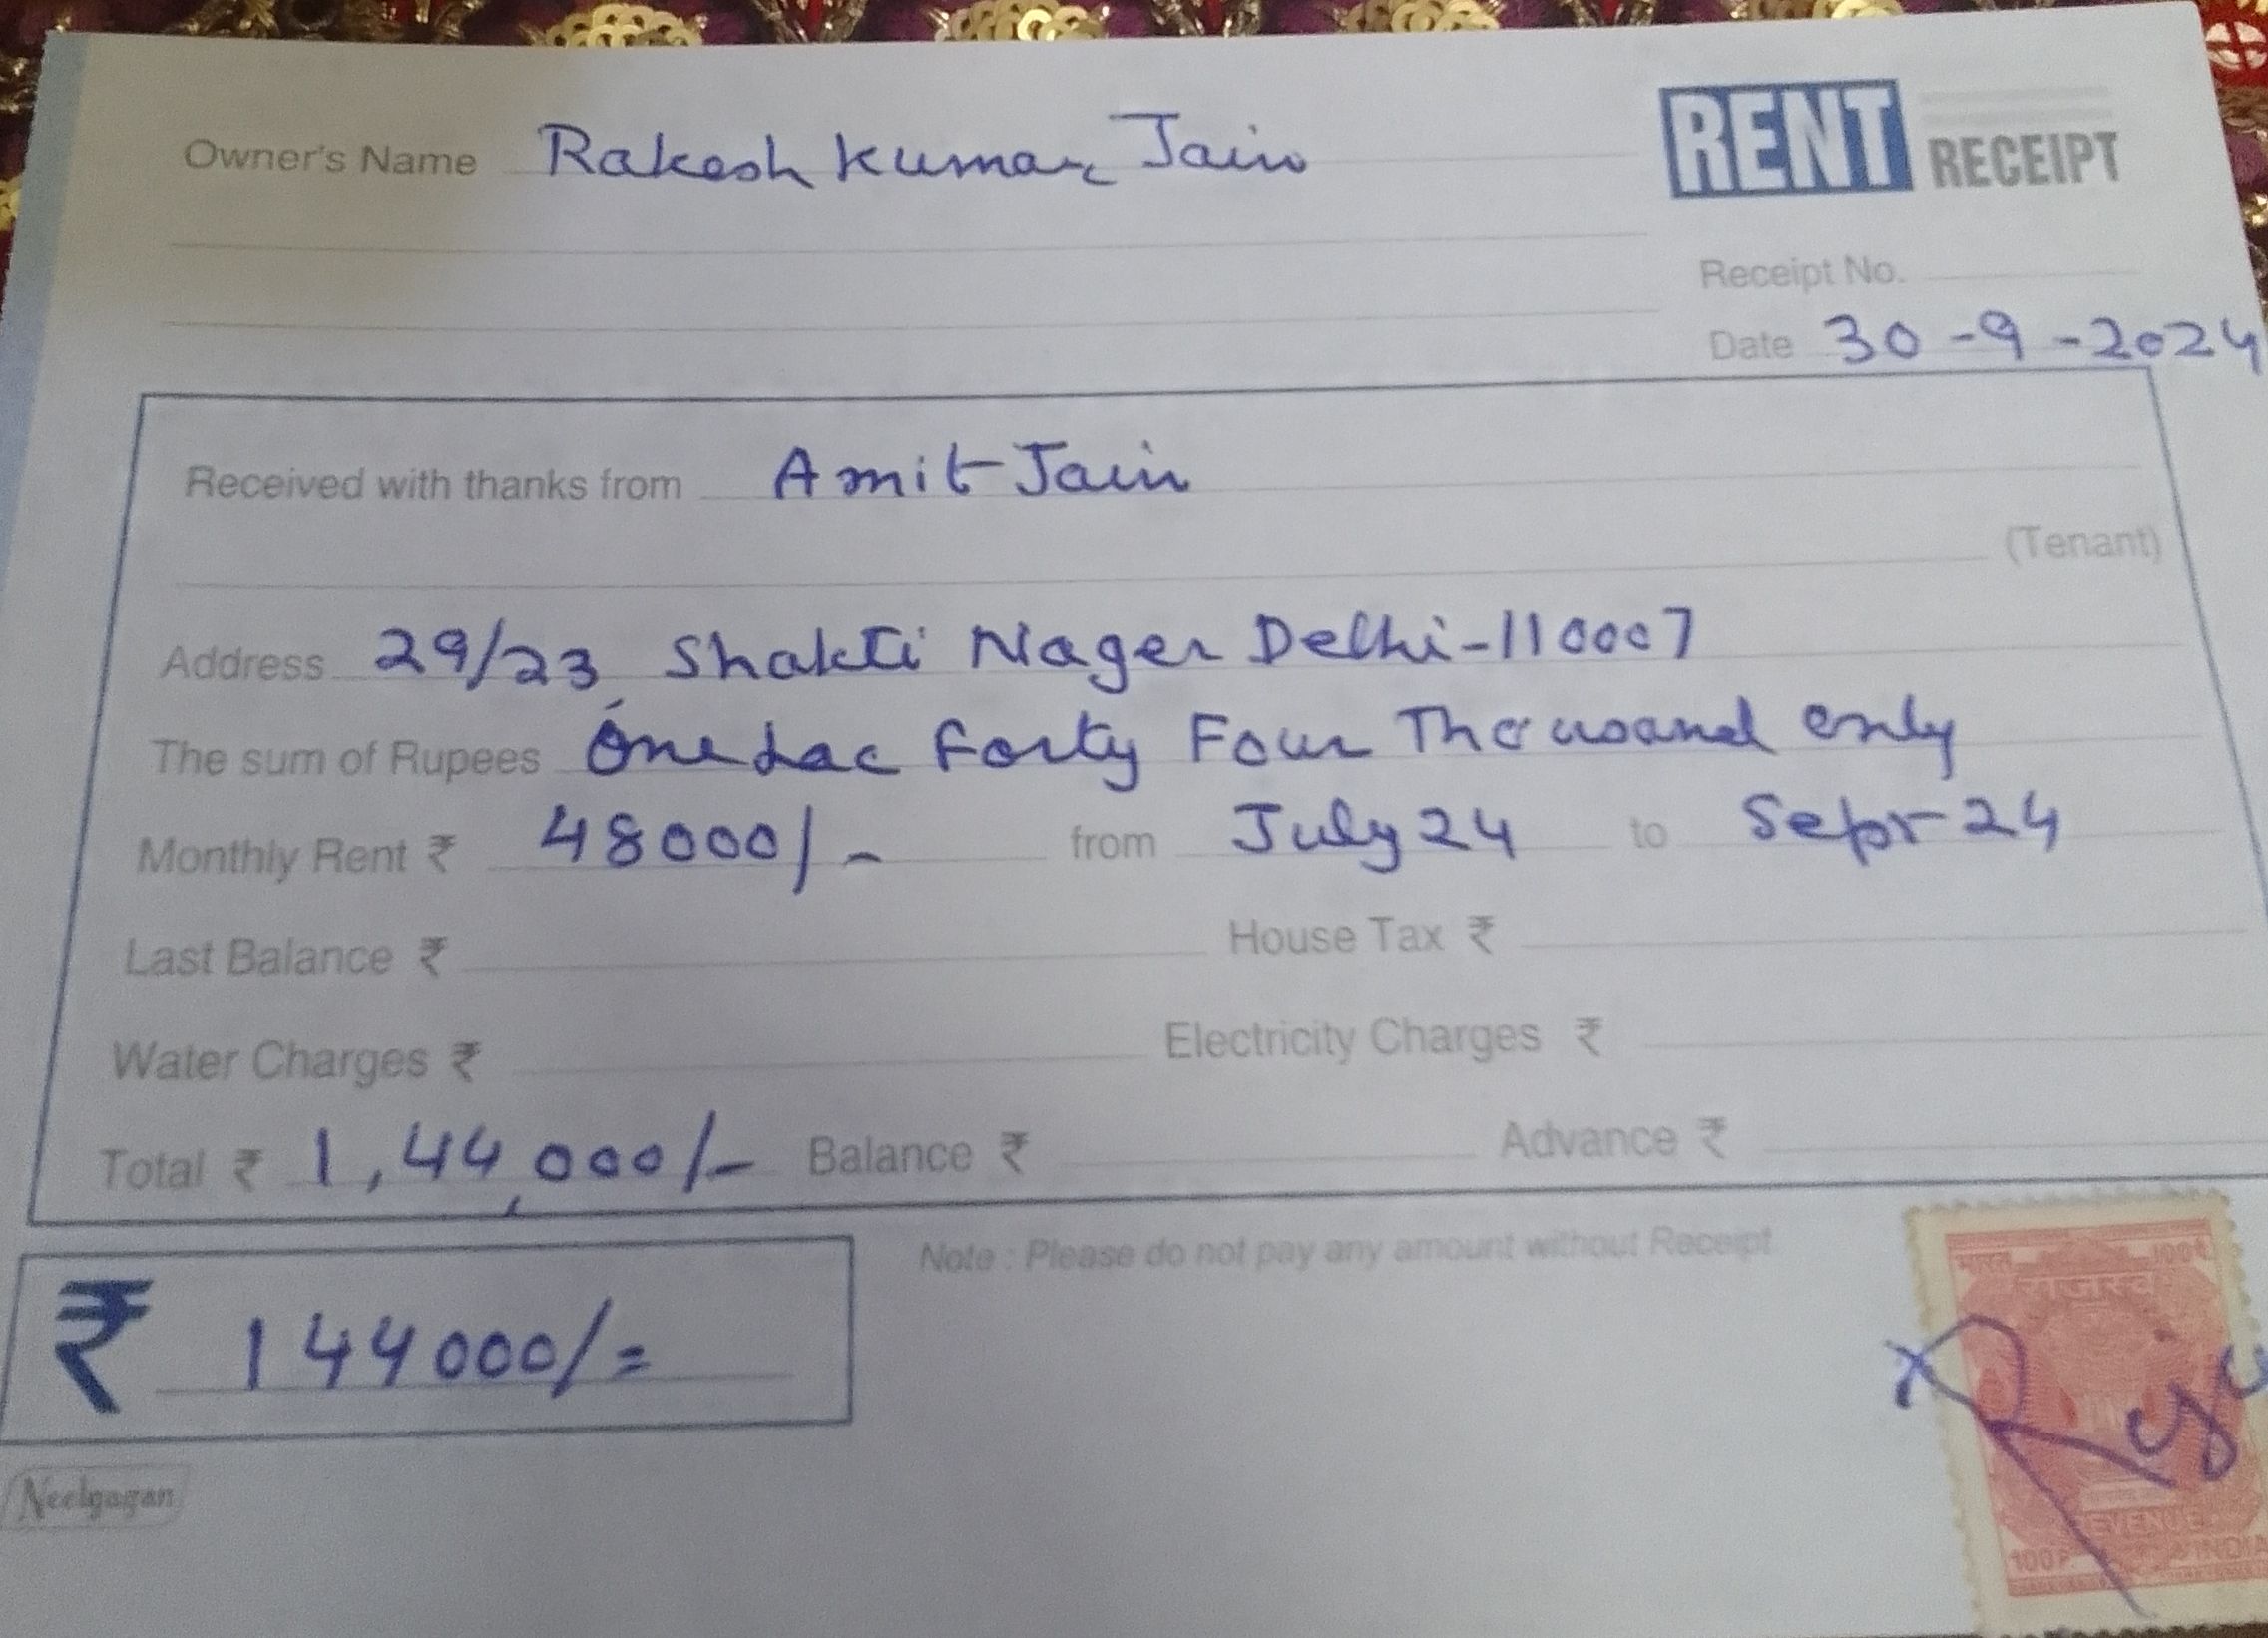 Owner's Name Rakesh Kumar Jain
RENT RECEIPT
Receipt No.
Date 30-9-2024
Received with thanks from Amit Jain
(Tenant)
Address 29/23, Shakti Nager Delhi-110007
The sum of Rupees One Lac Forty Four Thousand only
Monthly Rent ₹ 48000/- from July 24 to Sept-24
Last Balance ₹ House Tax ₹
Water Charges ₹ Electricity Charges ₹
Total ₹ 1,44,000/- Balance ₹ Advance ₹
Note : Please do not pay any amount without Receipt
₹ 144000/=
Neelgagan
भारत
राजस्व
REVENUE
INDIA